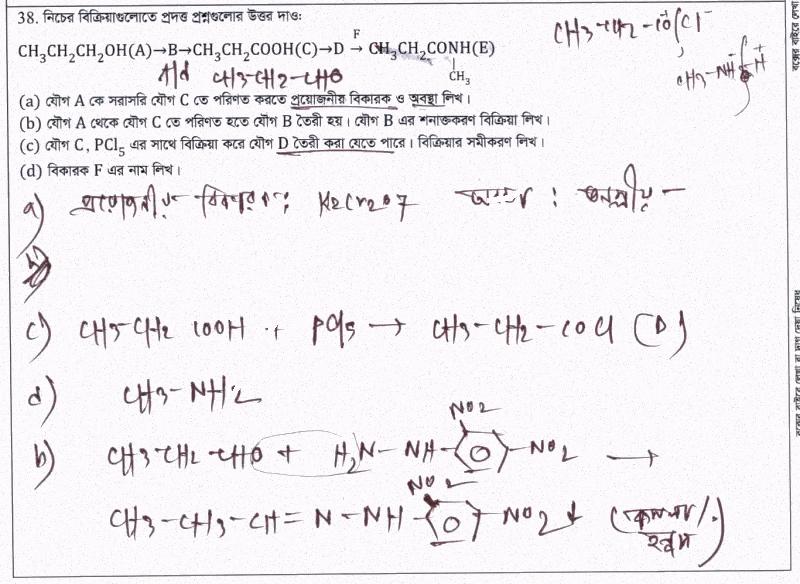 38. নিচের বিক্রিয়াগুলোতে প্রদত্ত প্রশ্নগুলোর উত্তর দাও:
CH3-CH2-CO/Cl
CH3CH2CH2OH(A)→B→CH3CH2COOH(C)→D →F CH3CH2CONH(E)
CH3
CH3-CH2-CHO
CH3-NH H
(a) যৌগ A কে সরাসরি যৌগ C তে পরিণত করতে প্রয়োজনীয় বিকারক ও অবস্থা লিখ।
(b) যৌগ A থেকে যৌগ C তে পরিণত হতে যৌগ B তৈরী হয়। যৌগ B এর শনাক্তকরণ বিক্রিয়া লিখ।
(c) যৌগ C, PCl5 এর সাথে বিক্রিয়া করে যৌগ D তৈরী করা যেতে পারে। বিক্রিয়ার সমীকরণ লিখ।
(d) বিকারক F এর নাম লিখ।
a) প্রয়োজনীয় বিকারক: K2Cr2O7 : অম্লীয়
c) CH3-CH2 COOH + PCl5 → CH3-CH2-COCl (D)
d) CH3-NH2
NO2
b) CH3-CH2-CHO + H2N-NH- -NO2 →
NO2
CH3-CH3-CH=N-NH- -NO2↓ (কমলা/
হলুদ)